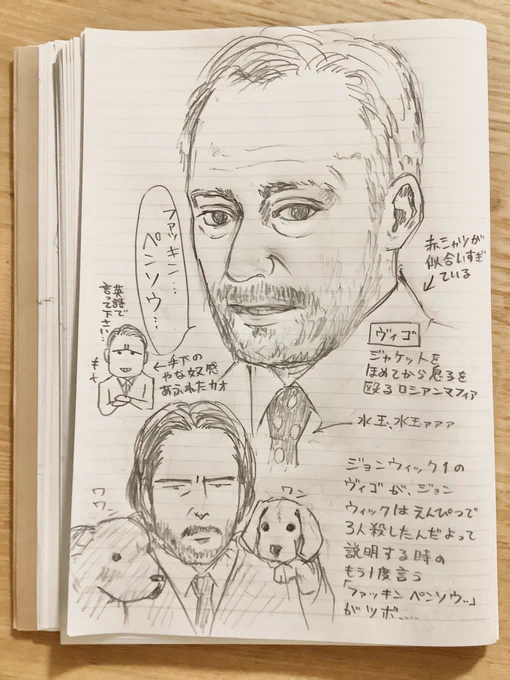 ファッキン…
ペンソウ…
赤シャツが
似合いすぎ
ている
英語で
言って下さい…
キャ
←手下の
やな奴感
あふれたカオ
ヴィゴ
ジャケットを
ほめてから息子を
殴るロシアンマフィア
水玉、水玉ァァァ
ワワン
ワン
ジョンウィック1の
ヴィゴが、ジョン
ウィックはえんぴつで
3人殺したんだよって
説明する時の
もう1度言う
「ファッキン ペンソウ…」
がツボ……